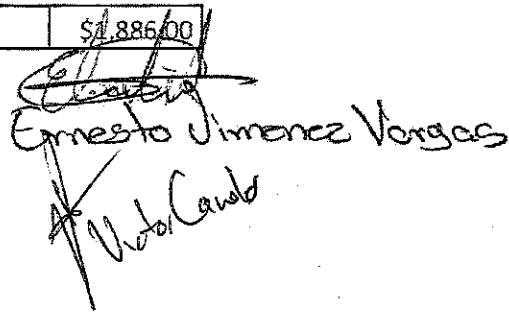 $1,886.00
Ernesto Jimenez Vargas
Victor